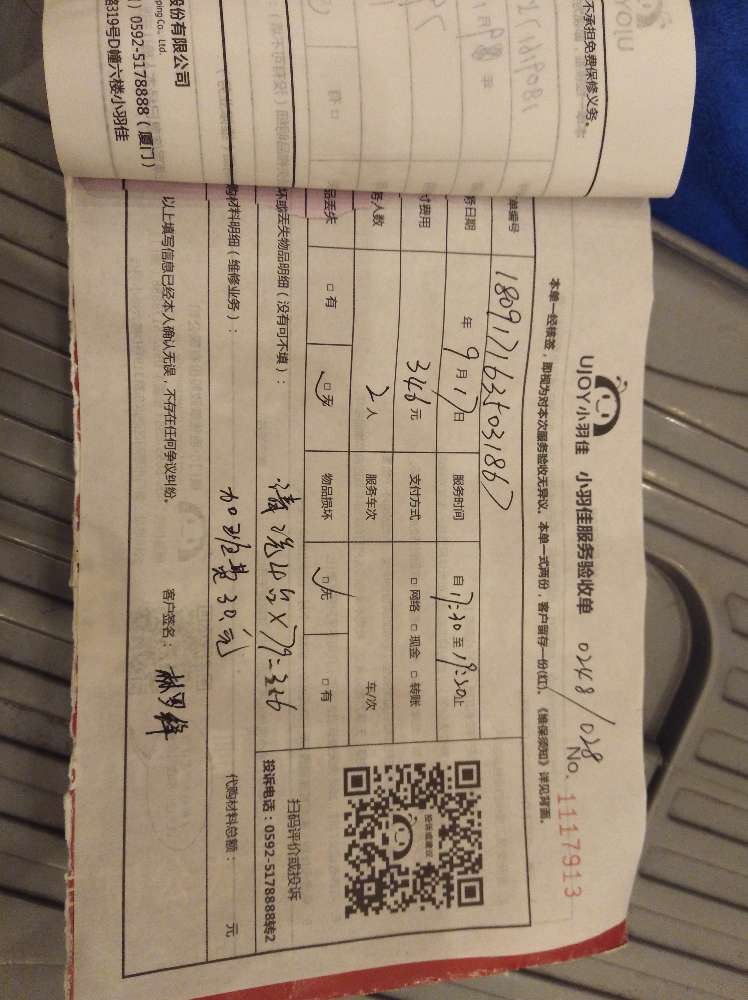 UJOY小羽佳 小羽佳服务验收单 0248/028
No. 1117913
本单一经核签，即视为对本次服务验收无异议。本单一式两份，客户留存一份(红)。《维保须知》详见背面。
单编号 180917163403186
务日期 年 9月17日 服务时间 自17:30至19:30止
付费用 346元 支付方式 □网络 □现金 □转账
务人数 2人 服务车次 车/次
品丢失 □有 □无 物品损坏 □无 □有
坏或丢失物品明细（没有可不填）：
清洗
购材料明细（维修业务）：
加班费30元
代购材料总额： 元
以上填写信息已经本人确认无误，不存在任何争议纠纷。
客户签名：
投诉或建议
扫码评价或投诉
投诉电话：0592-5178888转2
不承担免费保修义务。
UJOY
股份有限公司
ping Co., Ltd.
0592-5178888（厦门）
路319号D幢六楼小羽佳